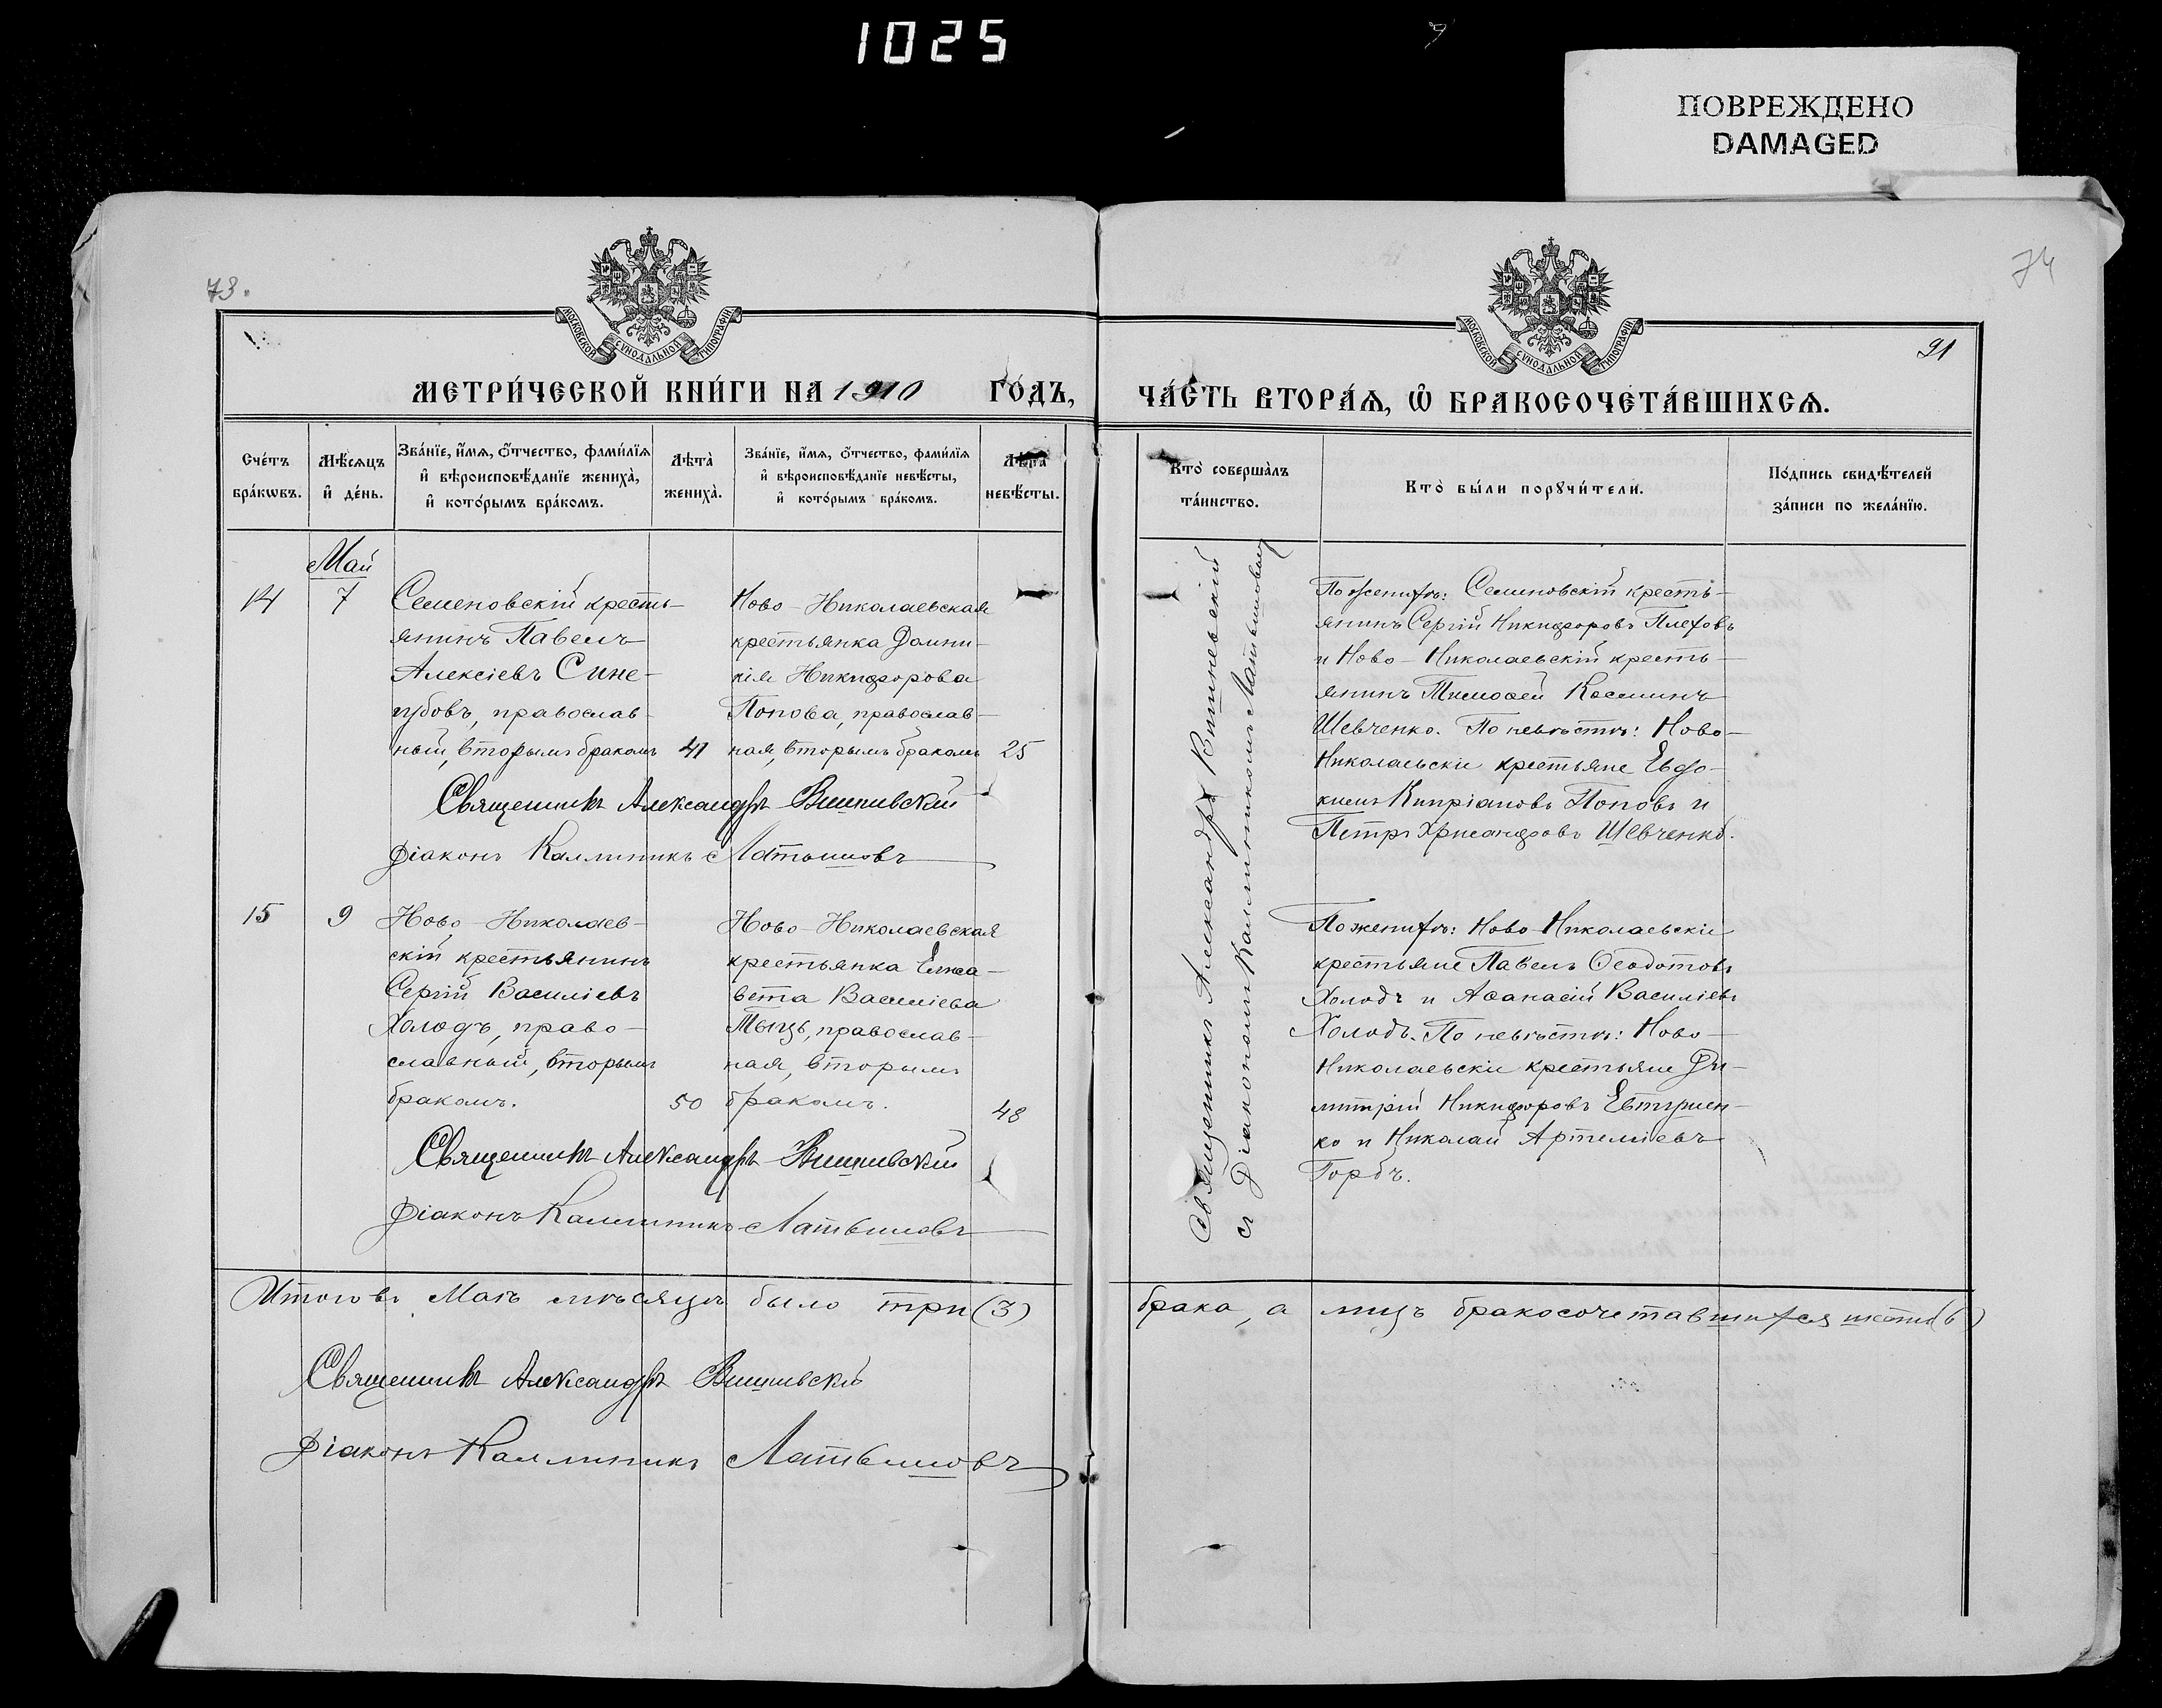 1025
ПОВРЕЖДЕНО
DAMAGED
73.
МОСКОВСКОЙ СѴНОДАЛЬНОЙ ТИПОГРАФІИ
МЕТРИ́ЧЕСКОЙ КНИ́ГИ НА 1910 ГО́ДЪ,
Сче́тъ
бра́кѡвъ.
Мѣ́сяцъ
и҆ де́нь.
Зва́нїе, и҆́мѧ, ѻ҆́тчество, фами́лїѧ
и҆ вѣроисповѣ́данїе жениха̀,
и҆ кото́рымъ бра́комъ.
Лѣта̀
жениха̀.
Зва́нїе, и҆́мѧ, ѻ҆́тчество, фами́лїѧ
и҆ вѣроисповѣ́данїе невѣ́сты,
и҆ кото́рымъ бра́комъ.
Лѣта̀
невѣ́сты.
Май
14
7
Семеновскій кресть-
янинъ Павелъ
Алексіевъ Сине-
губовъ, православ-
ный, вторымъ бракомъ
41
Ново-Николаевская
крестьянка Домни-
кія Никифорова
Попова, православ-
ная, вторымъ бракомъ
25
Священникъ Александръ Вишневскій
Діаконъ Каллиникъ Латышовъ
15
9
Ново-Николаев-
скій крестьянинъ
Сергій Василіевъ
Холодъ, право-
славный, вторымъ
бракомъ.
50
Ново-Николаевская
крестьянка Елиса-
вета Василіева
православ-
ная, вторымъ
бракомъ.
48
Священникъ Александръ Вишневскій
Діаконъ Каллиникъ Латышовъ
Итого въ Маѣ мѣсяцѣ было три (3)
Священникъ Александръ Вишневскій
Діаконъ Каллиникъ Латышовъ
74
91
МОСКОВСКОЙ СѴНОДАЛЬНОЙ ТИПОГРАФІИ
ЧА́СТЬ ВТОРА́Ѧ, Ѡ҆ БРАКОСОЧЕТА́ВШИХСѦ.
Кто̀ соверша́лъ
та́инство.
Кто̀ бы́ли порꙋчи́тели.
По́дпись свидѣ́телей
за́писи по жела́нїю.
Священникъ Александръ Вишневскій
съ Діакономъ Каллиникомъ Латышовымъ
По женихѣ: Семеновскій кресть-
янинъ Сергій Никифоровъ Плеховъ
и Ново-Николаевскій кресть-
янинъ Тимоѳей Косминъ
Шевченко. По невѣстѣ: Ново-
Николаевскіе крестьяне Евдо-
кимъ Кипріановъ Поповъ и
Петръ Хрисанфовъ Шевченко.
По женихѣ: Ново-Николаевскіе
крестьяне Павелъ Ѳеодотовъ
Холодъ и Аѳанасій Василіевъ
Холодъ. По невѣстѣ: Ново-
Николаевскіе крестьяне Ди-
митрій Никифоровъ Евтушен-
ко и Николай Артеміевъ
Горбъ.
брака, а лицъ бракосочетавшихся шесть (6)